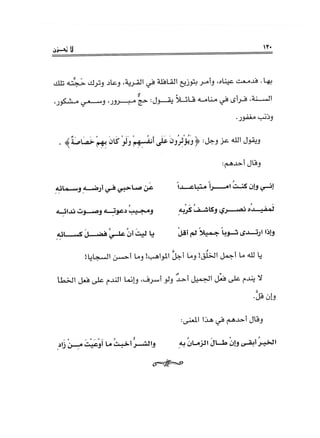 ١٢٠
لا تحزن
بها. فدمعت عيناه، وأمر بتوزيع القافلة في القرية، وعاد وترك حجَّته تلك
السنة، فرأى في منامه قائلاً يقول: حجٌّ مبرور، وسعي مشكور،
وذنب مغفور.
ويقول الله عز وجل: ﴿ وَيُؤْثِرُونَ عَلَى أَنفُسِهِمْ وَلَوْ كَانَ بِهِمْ خَصَاصَةٌ ﴾ .
وقال أحدهم:
إني وإن كنتُ امرأً متباعداً عن صاحبي في أرضه وسمائه
لمفيده نصري وكاشف كربه ومجيب دعوته وصوت ندائه
وإذا ارتدى ثوباً جميلاً لم أقل يا ليت أنَّ عليَّ فضل كسائه
يا لله ما أجمل الخلُق! وما أجلَّ المواهب! وما أحسن السجايا!
لا يندم على فعْل الجميل أحدٌ ولو أسرف، وإنما الندم على فعل الخطأ
وإن قلَّ.
وقال أحدهم في هذا المعنى:
الخيرُ أبقى وإنْ طال الزمانُ به والشرُّ أخبثُ ما أوعَيْتَ من زادِ